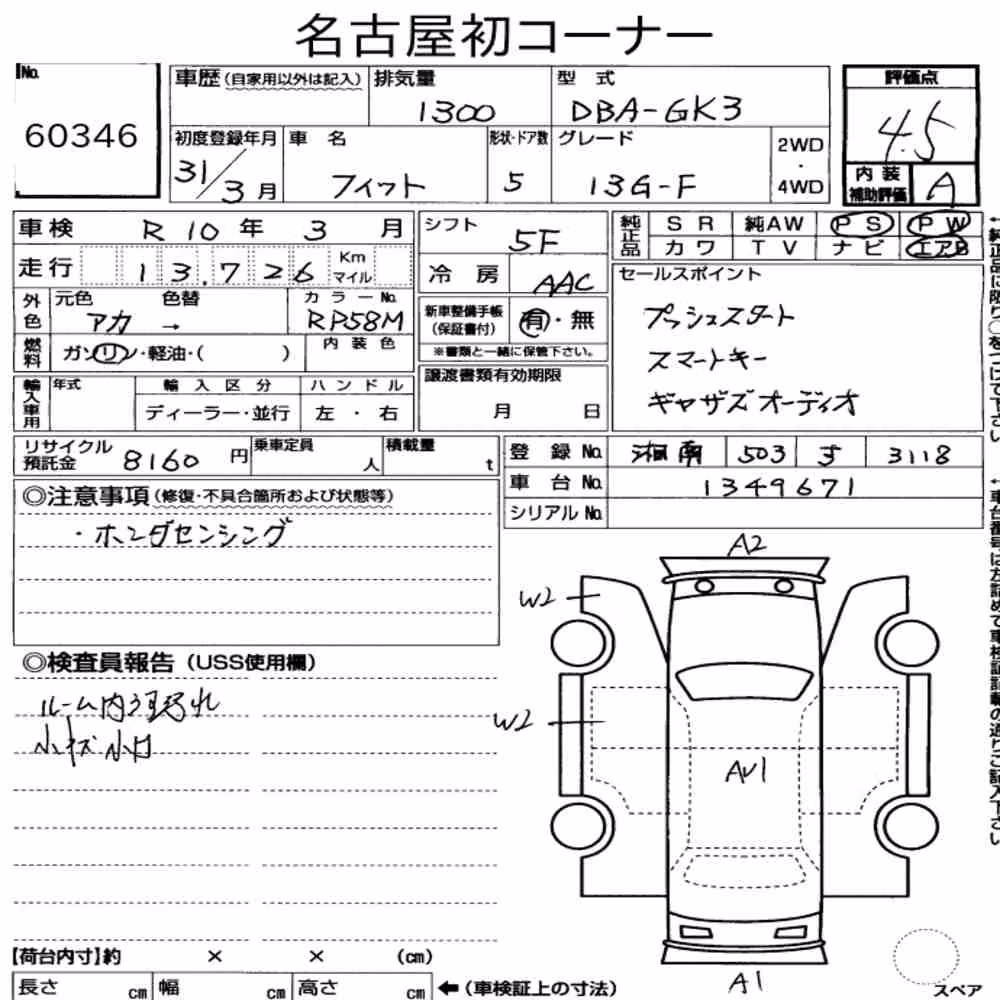 名古屋初コーナー
No. 60346
車歴(自家用以外は記入) 排気量 1300 型式 DBA-GK3
評価点 4.5
初度登録年月 31/3月 車名 フィット 形状・ドア数 5 グレード 13G-F 2WD・4WD
内装補助評価 A
車検 R10年 3月
シフト 5F
純正品 SR 純AW PS PW
カワ TV ナビ エアB
走行 13,726 Km マイル
冷房 AAC
セールスポイント
外色 元色 アカ → 色替 カラーNo. RP58M
新車整備手帳(保証書付) 有・無
※書類と一緒に保管下さい。
プッシュスタート
スマートキー
ギャザズオーディオ
燃料 ガソリン・軽油・( ) 内装色
譲渡書類有効期限 月 日
輸入車用 年式 輸入区分 ハンドル
ディーラー・並行 左・右
リサイクル預託金 8160円 乗車定員 人 積載量 t
登録No. 湘南 503 3118
車台No. 1349671
シリアルNo.
◎注意事項(修復・不具合箇所および状態等)
・ホンダセンシング
A2
W2
W2
AU1
A1
◎検査員報告(USS使用欄)
ルーム内
小キズ 小凹
【荷台内寸】約 × × (cm)
長さ cm 幅 cm 高さ cm ←(車検証上の寸法)
スペア
↑純正品に限り○をつけて下さい
↑車台番号は左詰めで車検証記載の通りご記入下さい